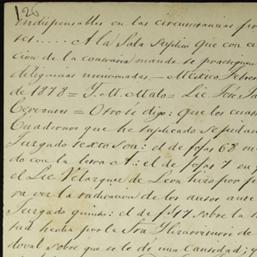 126
indispensables en las circunstancias pre
A la Sala suplico que con ci
cion de la contraria mande se practiquen
diligencias mencionadas. = Mexico Febrero
de 1878 = J. M. Malo = Lic José
Ceremos = Otro sí digo: que los cuatro
Cuadernos que he suplicado se pidan
Juzgado sexto son: el de fojas 68
do con la letra A: el de fojas 7 en
el Lic Velazquez de Leon hizo por
la radicacion de los autos ante
Juzgado quinto: el de fs 47 sobre la
tud hecha por la Sra
doval sobre que se le dé una cantidad; y